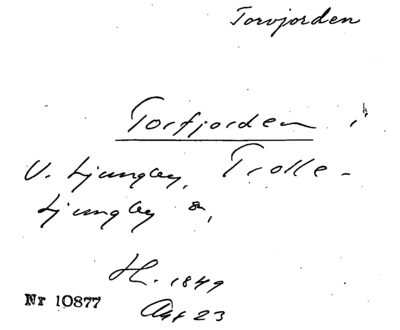 Torvjorden
Torfjorden i
V. Ljungby, Trolle-
Ljungby sn,
H. 1849
Akt 23
Nr 10877